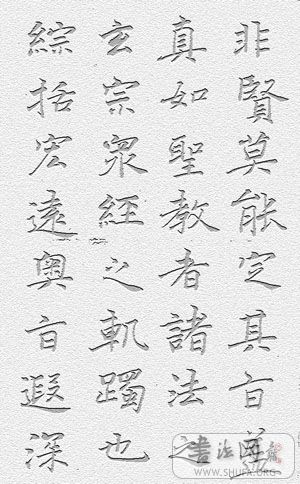 非賢莫能定其旨蓋
真如聖教者諸法之
玄宗衆經之軌躅也
綜括宏遠奧旨遐深
WWW.SHUFA.ORG